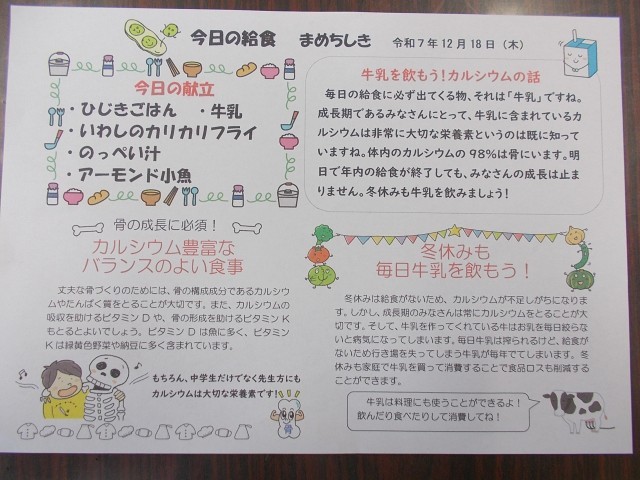 今日の給食 まめちしき 令和7年12月18日(木)
今日の献立
・ひじきごはん ・牛乳
・いわしのカリカリフライ
・のっぺい汁
・アーモンド小魚
牛乳を飲もう!カルシウムの話
毎日の給食に必ず出てくる物、それは「牛乳」ですね。
成長期であるみなさんにとって、牛乳に含まれているカ
ルシウムは非常に大切な栄養素というのは既に知って
いますね。体内のカルシウムの98%は骨にいます。明
日で年内の給食が終了しても、みなさんの成長は止ま
りません。冬休みも牛乳を飲みましょう!
骨の成長に必須!
カルシウム豊富な
バランスのよい食事
丈夫な骨づくりのためには、骨の構成成分であるカルシウ
ムやたんぱく質をとることが大切です。また、カルシウムの
吸収を助けるビタミンDや、骨の形成を助けるビタミンK
もとるとよいでしょう。ビタミンDは魚に多く、ビタミン
Kは緑黄色野菜や納豆に多く含まれています。
もちろん、中学生だけでなく先生方にも
カルシウムは大切な栄養素です!
冬休みも
毎日牛乳を飲もう!
冬休みは給食がないため、カルシウムが不足しがちになりま
す。しかし、成長期のみなさんは常にカルシウムをとることが大
切です。そして、牛乳を作ってくれている牛はお乳を毎日絞らな
いと病気になってしまいます。毎日牛乳は搾られるけど、給食が
ないため行き場を失ってしまう牛乳が毎年でてしまいます。冬
休みも家庭で牛乳を買って消費することで食品ロスも削減する
ことができます。
牛乳は料理にも使うことができるよ!
飲んだり食べたりして消費してね!